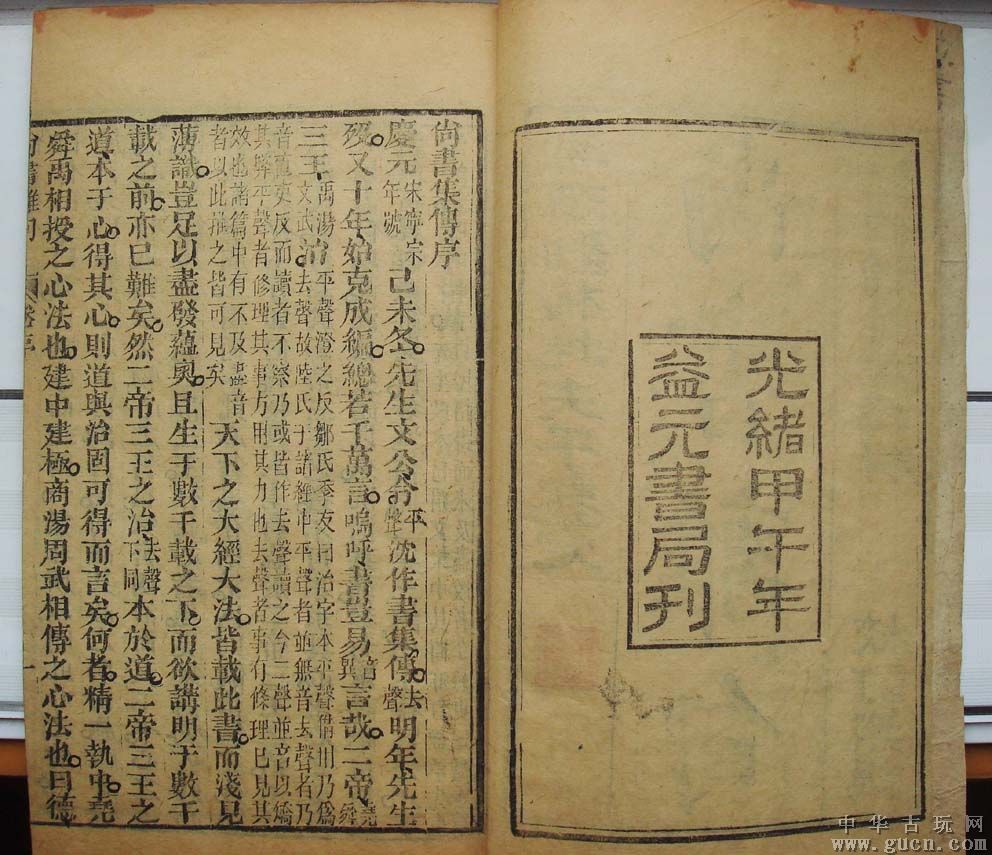 光緒甲午年
益元書局刊
尚書集傳序
慶元宋寧宗年號己未冬先生文公令平聲沈作書集傳去聲明年先生
歿又十年始克成編總若干萬言嗚呼書豈易音異言哉二帝堯舜
三王禹湯文武治平聲澄之反鄒氏季友曰治字本平聲借用乃爲去聲故陸氏于諸經中平聲者並無音去聲者乃
音直吏反而讀者不察乃或皆作去聲讀之今二聲並音以矯
其弊平聲者修理其事方用其力也去聲者事有條理已見其
效也諸篇中有不及盡音者以此推之皆可見矣天下之大經大法皆載此書而淺見
薄識豈足以盡發蘊奧且生于數千載之下而欲講明于數千
載之前亦已難矣然二帝三王之治去聲下同本於道二帝三王之
道本于心得其心則道與治固可得而言矣何者精一執中堯
舜禹相授之心法也建中建極商湯周武相傳之心法也曰德
尚書離句
中华古玩网
www.gucn.com